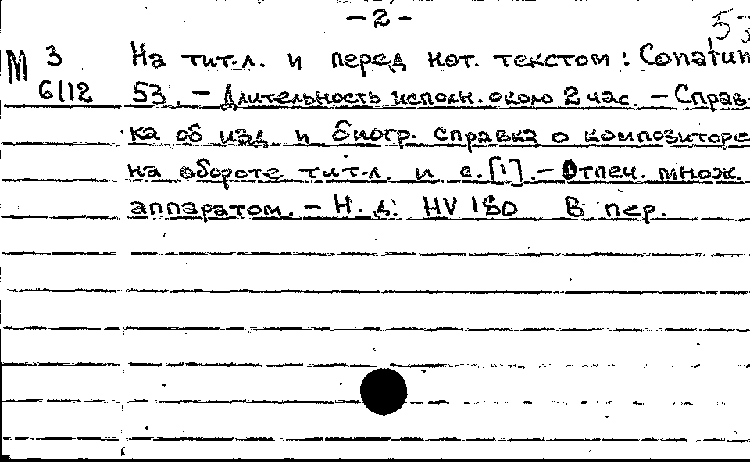 - 2 -
53
М 3 На тит.л. и перед нот. текстом: Conatum
6/12 53. - Длительность исполн. около 2 час. - Справ-
ка об изд. и биогр. справка о композиторе
на обороте тит.л. и с.[1]. - Отпеч. множ.
аппаратом. - Н. д. HV 180 В пер.